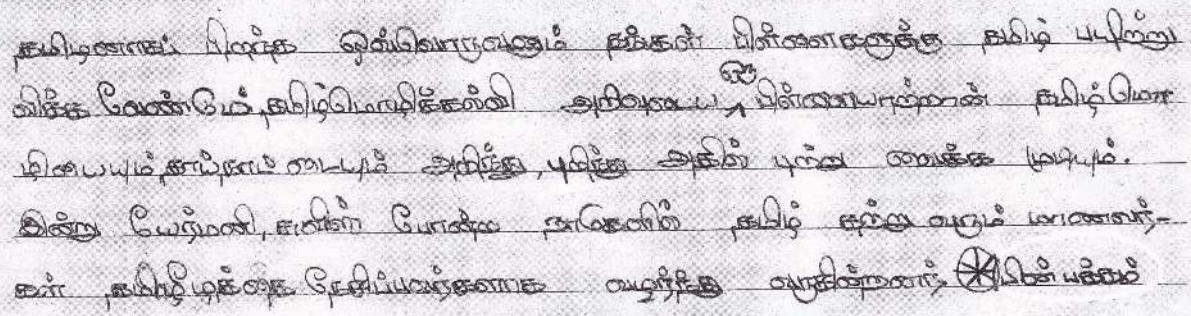 தமிழனாகப் பிறந்த ஒவ்வொருவரும் தங்கள் பிள்ளைகளுக்கு தமிழ் பயிற்று
விக்க வேண்டும், தமிழ்மொழிக்கல்வி அறிவுடைய ஒரு பிள்ளையாற்றான் தமிழ் மொ
ழியையும், தாய்நாட்டையும் அறிந்து, புரிந்து அதில் பற்று வைக்க முடியும்.
இன்று யேர்மனி, சுவிஸ் போன்ற நாடுகளில் தமிழ் கற்று வரும் மாணவர்-
கள் தமிழீழத்தை நேசிப்பவர்களாக வளர்ந்து வருகின்றனர், பின் பக்கம்